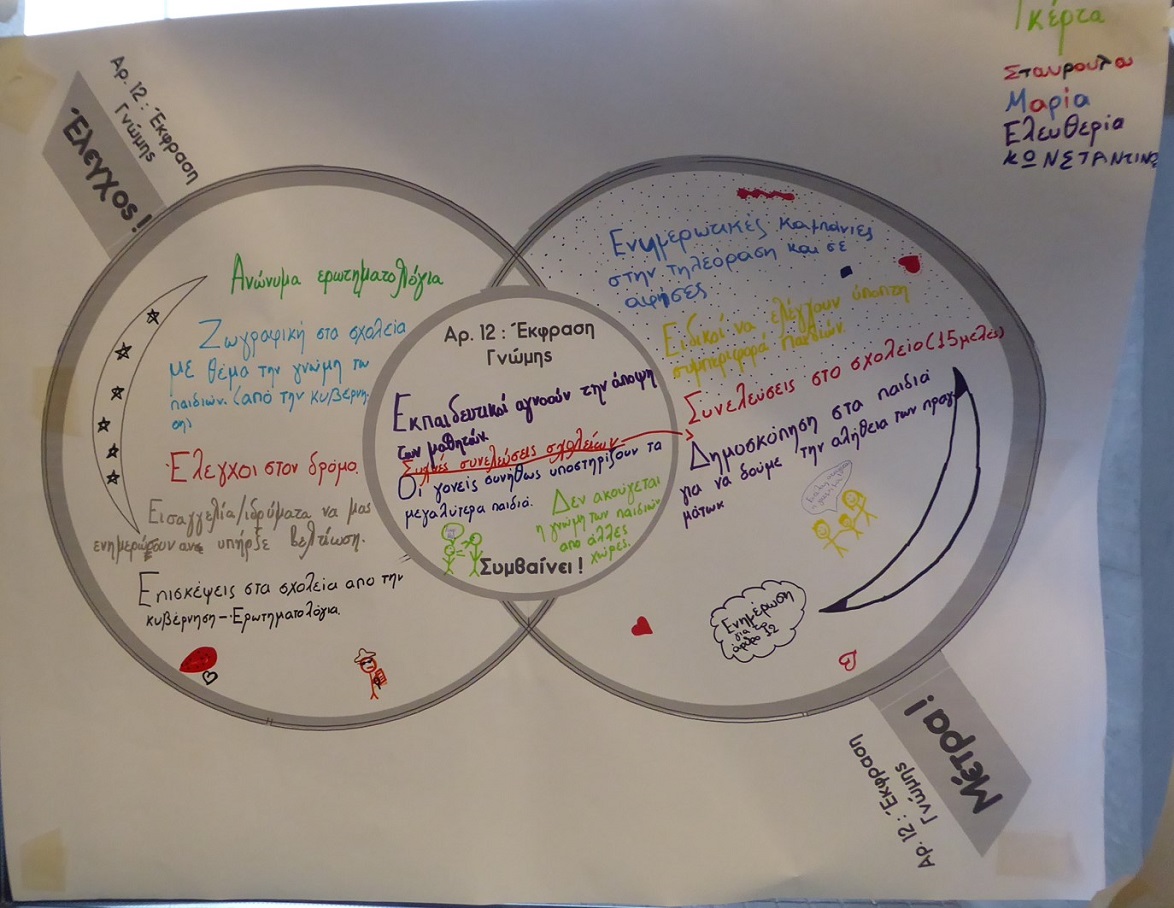 Γκέρτα
Σταυρούλα
Μαρία
Ελευθερία
ΚΩΝΣΤΑΝΤΙΝΟ
Αρ. 12 : Έκφραση
Γνώμης
Έλεγχος !
Ανώνυμα ερωτηματολόγια
Ζωγραφική στα σχολεία
με θέμα την γνώμη των
παιδιών. (από την κυβέρνη
ση)
Έλεγχοι στον δρόμο.
Εισαγγελία/ιδρύματα να μας
υπήρξε βελτίωση.
Επισκέψεις στα σχολεία απο την
κυβέρνηση – Ερωτηματολόγια.
Αρ. 12 : Έκφραση
Γνώμης
Εκπαιδευτικοί αγνοούν την άποψη
των μαθητών
συνελεύσεις σχολείων
Οι γονείς συνήθως υποστηρίζουν τα
μεγαλύτερα παιδιά.
Δεν ακούγεται
η γνώμη των παιδιών
από άλλες
χώρες.
Συμβαίνει !
Ενημερωτικές καμπάνιες
στην τηλεόραση και σε
αφήσες
Ειδικοί να ελέγχουν ύποπτη
συμπεριφορά παιδιών
Συνελεύσεις στο σχολείο (15μελές)
Δημοσκόπηση στα παιδιά
για να δούμε την αλήθεια των πραγ
μάτων
Ενημέρωση
για το
άρθρο 12
Μέτρα !
Αρ. 12 : Έκφραση
Γνώμης